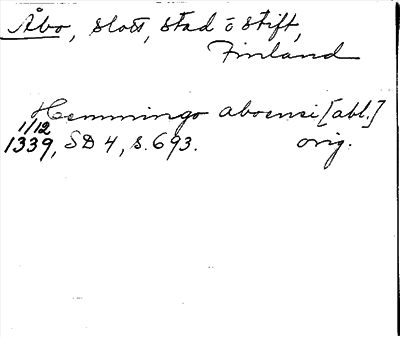 Åbo, slott, stad o stift,
Finland
Hemmingo aboensi [abl.]
1/12
1339, SD 4, s. 693. orig.